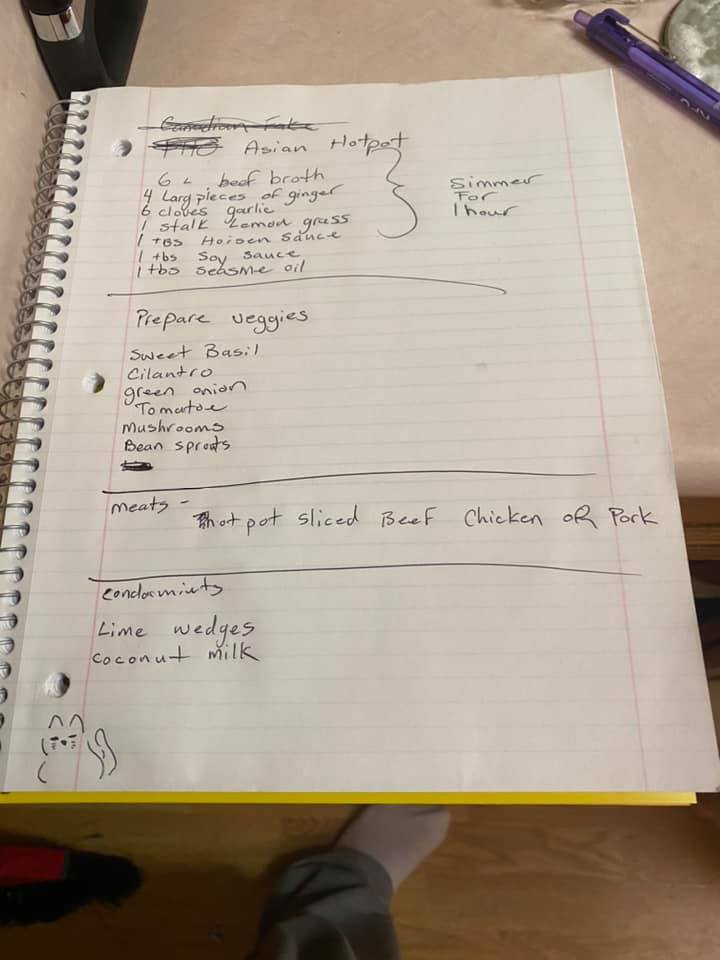 Canadian Fake
PHO Asian Hotpot
6 L beef broth
4 Larg pieces of ginger
6 cloves garlic
1 stalk Lemon grass
1 TBS Hoisen Sauce
1 tbs Soy Sauce
1 tbs Seasme oil
Simmer
For
1 hour
Prepare veggies
Sweet Basil
Cilantro
green onion
Tomatoe
Mushrooms
Bean sprouts
Meats -
hot pot sliced Beef Chicken OR Pork
Lime wedges
Coconut milk